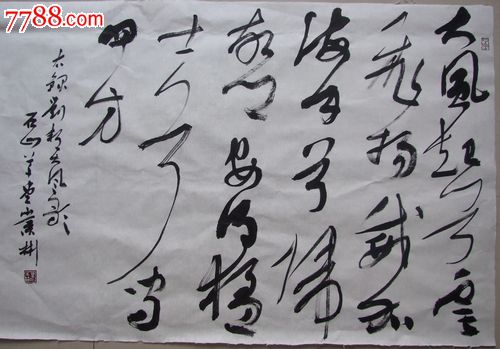 7788.com
大風起兮雲
飛揚威加
海内兮歸
故鄉安得猛
士兮守
四方
右錄劉邦大風歌
石山草堂彬